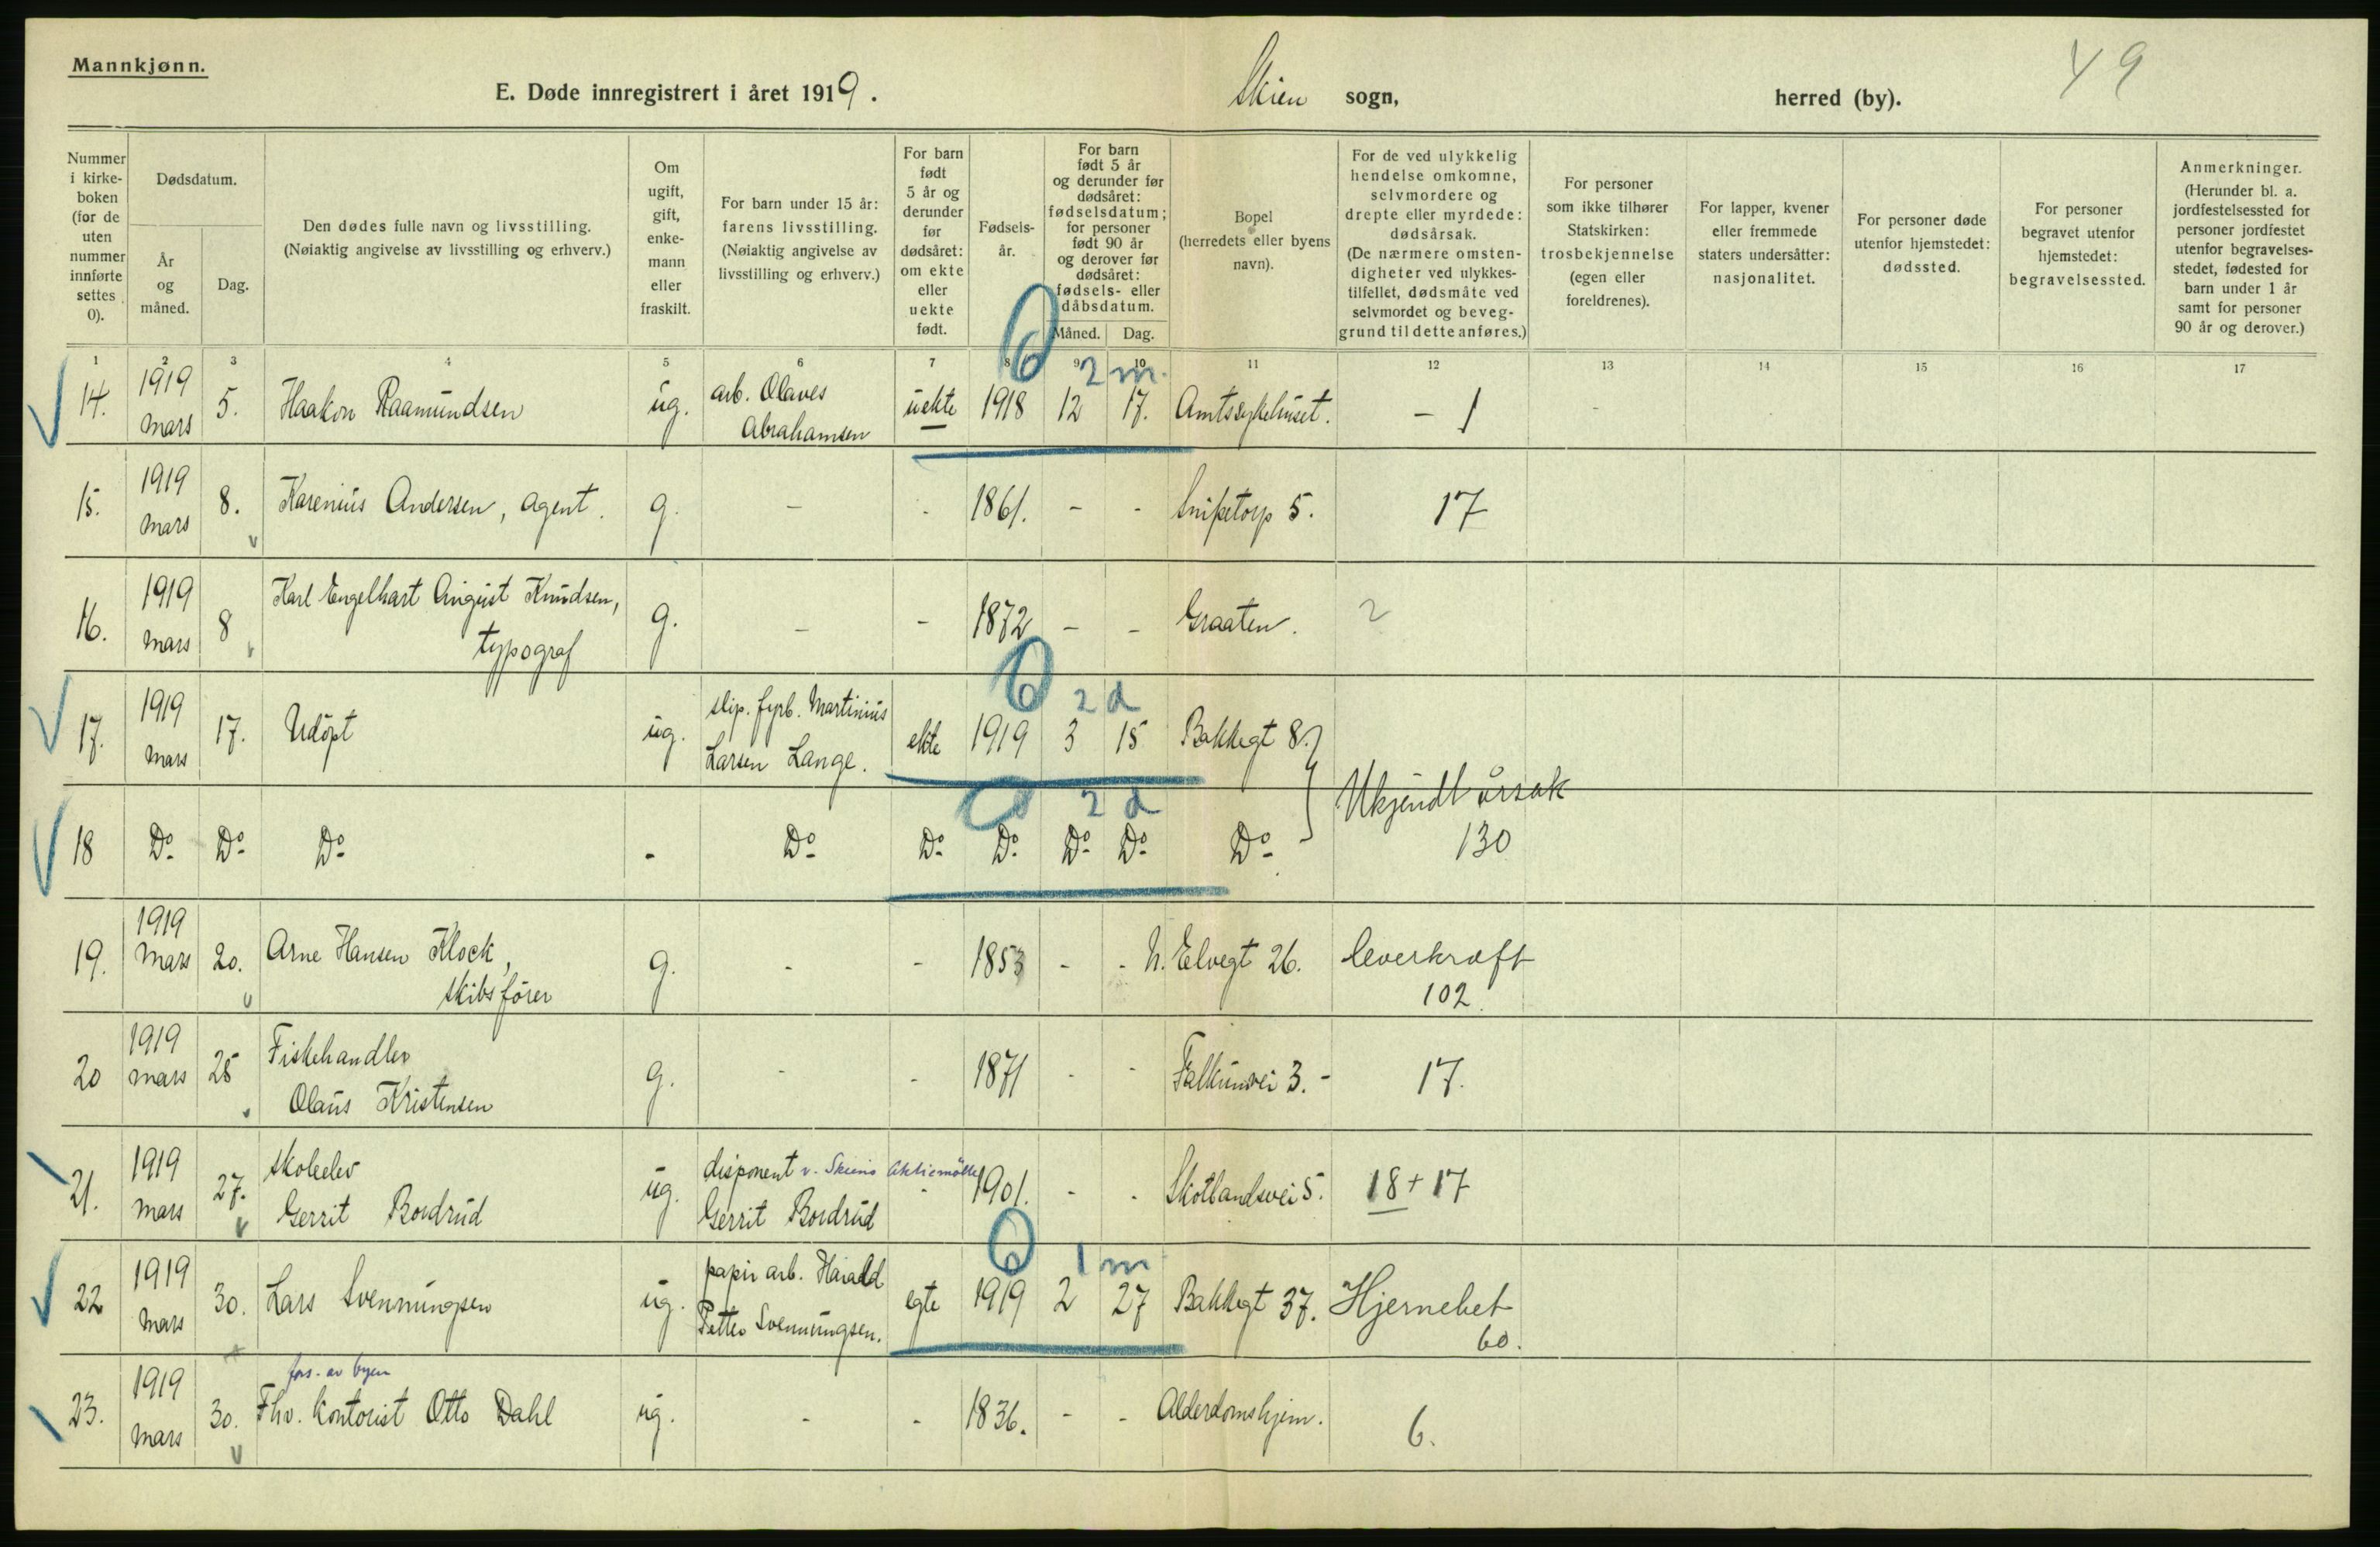 Mannkjønn.
E. Døde innregistrert i året 1919.
Skien sogn,
herred (by).
49
Nummer i kirke-boken (for de uten nummer innførte settes 0).
Dødsdatum.
År og måned.
Dag.
Den dødes fulle navn og livsstilling.
(Nøiaktig angivelse av livsstilling og erhverv.)
Om ugift, gift, enke-mann eller fraskilt.
For barn under 15 år: farens livsstilling.
(Nøiaktig angivelse av livsstilling og erhverv.)
For barn født 5 år og derunder før dødsåret: om ekte eller uekte født.
Fødsels-år.
For barn født 5 år og derunder før dødsåret: fødselsdatum; for personer født 90 år og derover før dødsåret: fødsels- eller dåbsdatum.
Måned. Dag.
Bopel
(herredets eller byens navn).
For de ved ulykkelig hendelse omkomne, selvmordere og drepte eller myrdede: dødsårsak.
(De nærmere omsten-digheter ved ulykkes-tilfellet, dødsmåte ved selvmordet og beveg-grund til dette anføres.)
For personer som ikke tilhører Statskirken: trosbekjennelse (egen eller foreldrenes).
For lapper, kvener eller fremmede staters undersåtter: nasjonalitet.
For personer døde utenfor hjemstedet: dødssted.
For personer begravet utenfor hjemstedet: begravelsessted.
Anmerkninger.
(Herunder bl. a. jordfestelsessted for personer jordfestet utenfor begravelses-stedet, fødested for barn under 1 år samt for personer 90 år og derover.)
1 2 3 4 5 6 7 8 9 10 11 12 13 14 15 16 17
2 m.
14. 1919 mars 5. Haakon Raamundsen ug. arb. Olaves Abrahamsen uekte 1918 12 17. Amtssykehuset. - 1
15. 1919 mars 8. Karenius Andersen, agent. g. - - 1861. - - Snipetorp 5. 17
16. 1919 mars 8 Karl Engelhart August Knudsen, typograf g. - - 1872 - - Graaten. 2
2 d
17. 1919 mars 17. Udöpt ug. slip. fyrb. Martinius Larsen Lange. ekte 1919 3 15 Bakkegt 8.
Ukjendt årsak
2 d
18 Do Do Do - Do Do Do Do Do Do 130
19. 1919 mars 20. Arne Hansen Klock, skibsfører g. - - 1853 - - N. Elvegt 26. leverkræft 102.
20 1919 mars 25 Fiskehandler Olaus Kristensen g. - - 1871 - - Falkumvei 3. - 17.
21. 1919 mars 27. skoleelev Gerrit Bordrud ug. disponent v. Skiens Aktiemölle Gerrit Bordrud - 1901. - - Skotlandsvei 5. 18 + 17
1 m
22 1919 mars 30. Lars Svenningsen ug. papir arb. Harald Petter Svenningsen. egte 1919 2 27 Bakkegt 37. Hjernebet 60.
fors. av byen
23. 1919 mars 30. Fhv. kontorist Otto Dahl ug. - - 1836. - - Alderdomshjem. 6.